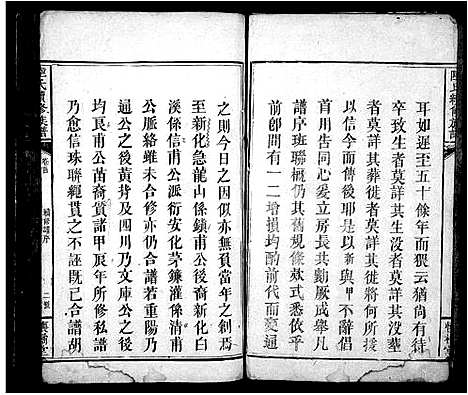 耳如遲至五十餘年而猥云猶尚有待
卒致生者莫詳其生没者莫詳其没遷
者莫詳其葬徙者莫詳其方將何所據
以信今而傳後耶是以新與甲午不辭
首用告同心爰立房長共勷厥成舉凡
譜序班聯概仍其舊規條欵式悉依乎
前郎間有一二增損均酌前代而變通
之則今日之因似亦無貿當年之創焉
至新化急龍山係鎮甫公後裔新化白
溪係信甫公派衍安化茅鐮灌係清甫
公脈絡雖未合修亦仍合譜若重陽乃
通公之後黃背及四川乃文庫公之後
均艮甫公苗裔貲諸甲辰年所修私譜
乃愈信珠聯繩貫之不誣既已合譜胡
卷首
續修譜序
二